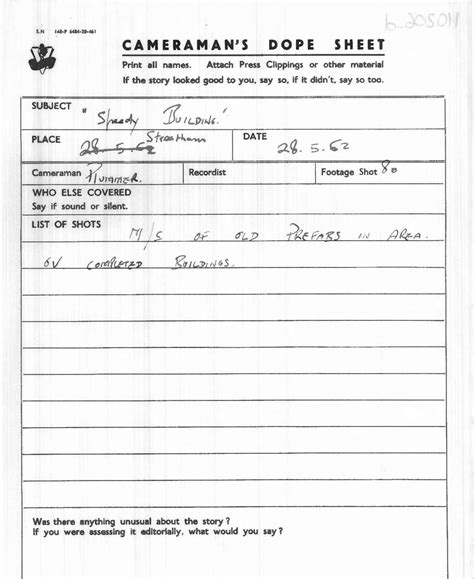 S.N 168-P 6484-20-461
CAMERAMAN'S DOPE SHEET
Print all names. Attach Press Clippings or other material
If the story looked good to you, say so, if it didn't, say so too.
SUBJECT "Speedy Building."
PLACE 28.5.62 Streatham DATE 28.5.62
Cameraman Plummer. Recordist Footage Shot 80
WHO ELSE COVERED
Say if sound or silent.
LIST OF SHOTS
M/S OF OLD PREFABS IN AREA.
GV COMPLETED BUILDINGS.
Was there anything unusual about the story ?
If you were assessing it editorially, what would you say ?